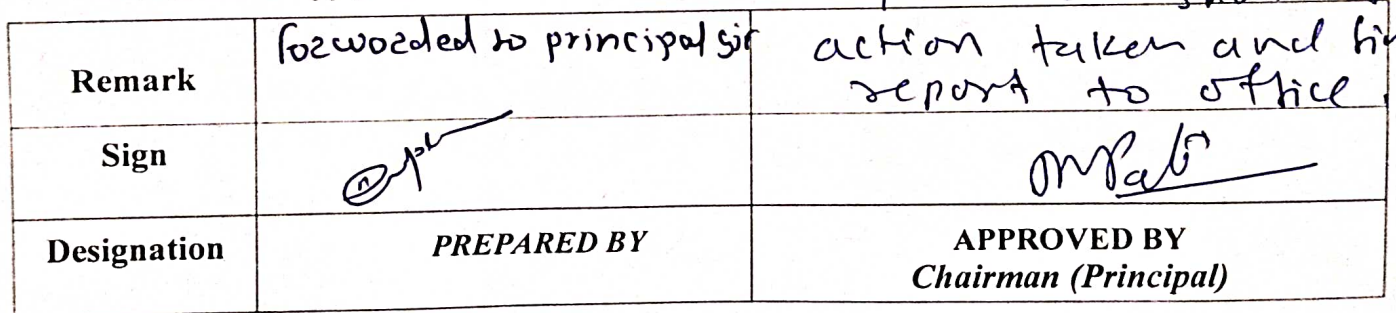 Remark forwarded to principal sir action taken and
report to office.
Sign
Designation PREPARED BY APPROVED BY
Chairman (Principal)